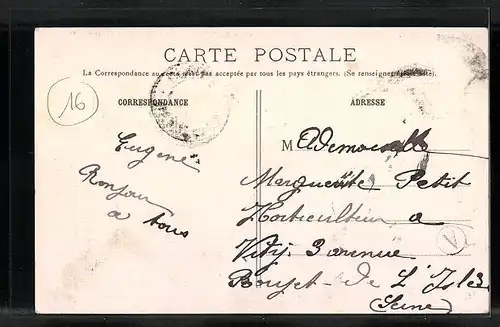 CARTE POSTALE
La Correspondance au verso n'est pas acceptée par tous les pays étrangers. (Se renseigner à la poste).
16
CORRESPONDANCE
ADRESSE
Eugène
Bonjour
a tous
Mademoiselle
Marguerite Petit
Horticulteur a
Vitry 3 avenue
Rouget-De L'Isle
(Seine)
A